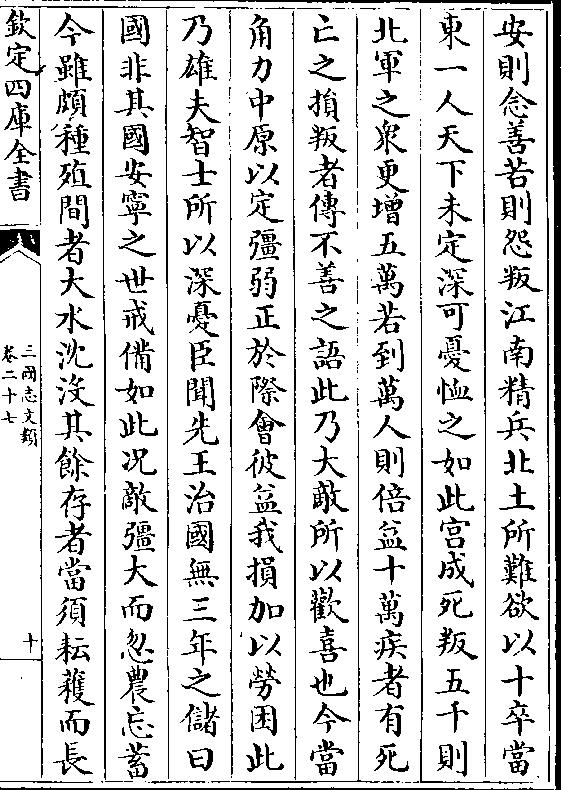 安則念善苦則怨叛江南精兵北土所難欲以十卒當
東一人天下未定深可憂恤之如此宫成死叛五千則
北軍之衆更增五萬若到萬人則倍益十萬疾者有死
亡之損叛者傳不善之語此乃大敵所以歡喜也今當
角力中原以定彊弱正於際會彼益我損加以勞困此
乃雄夫智士所以深憂臣聞先王治國無三年之儲曰
國非其國安寧之世戒備如此况敵彊大而忽農忘蓄
今雖頗種殖間者大水沈没其餘存者當須耘穫而長
欽定四庫全書
三國志文類
卷二十七
十